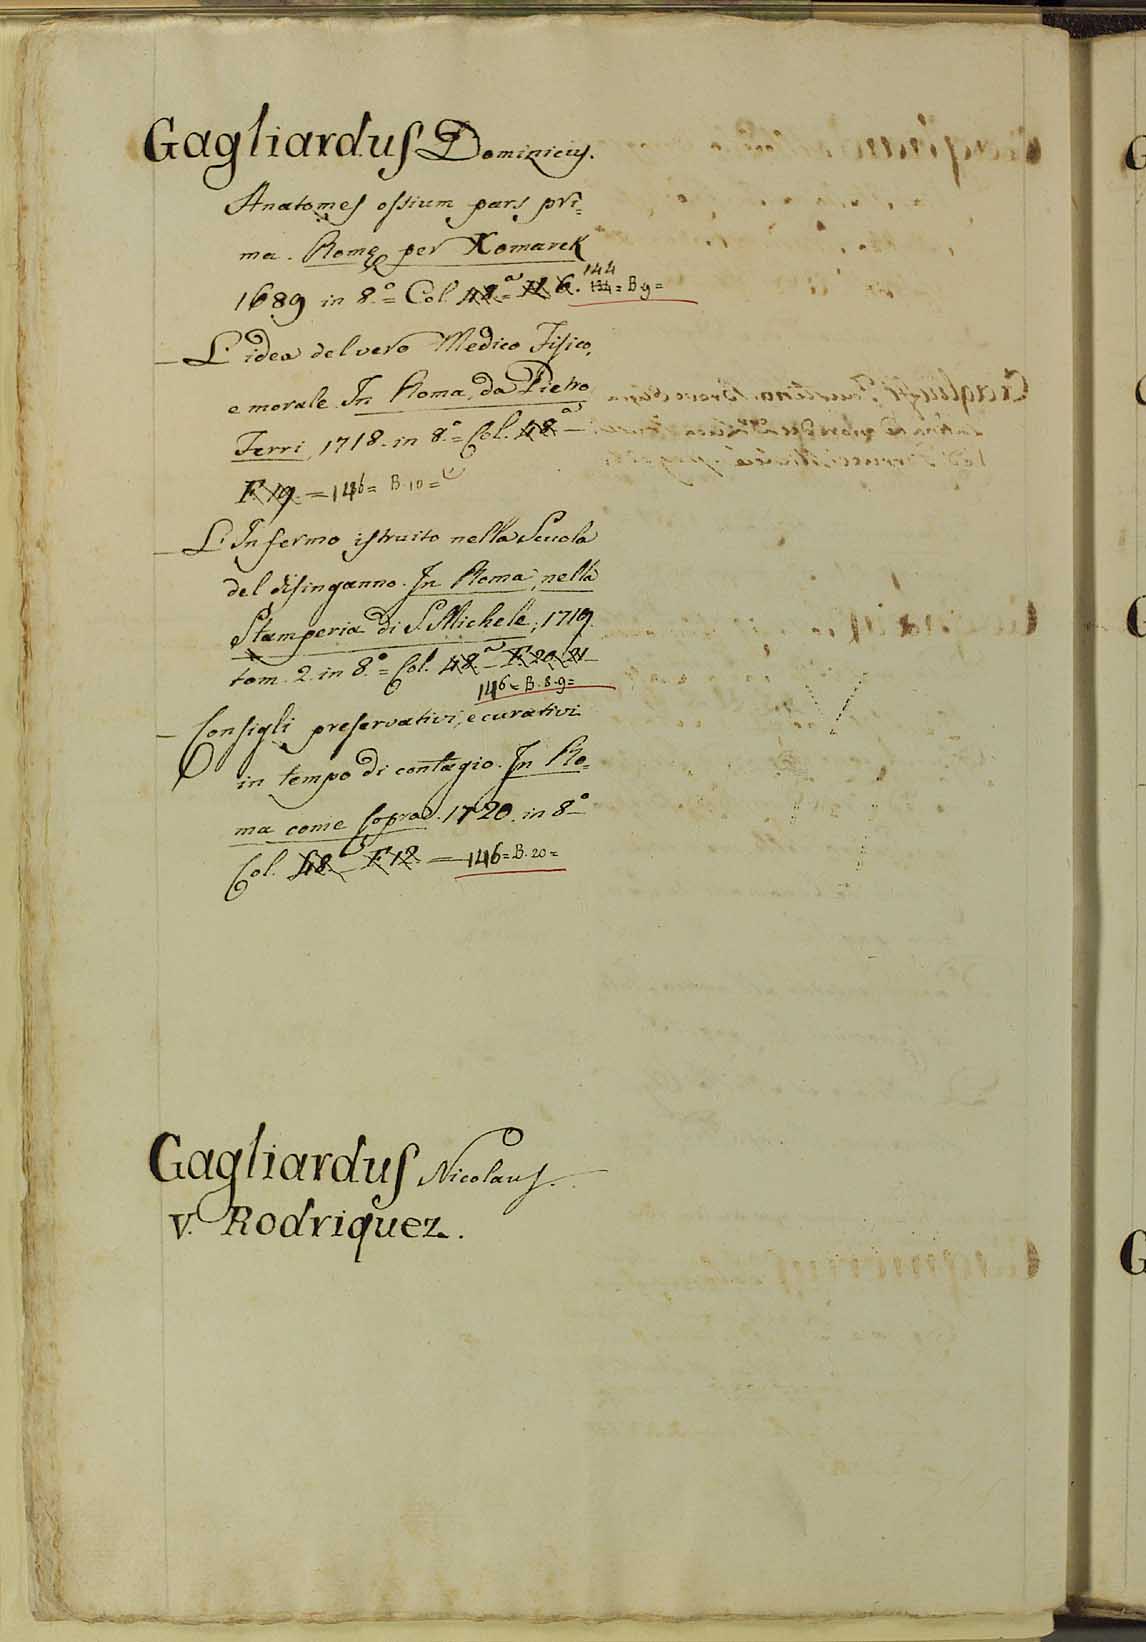 Gagliardus Dominicus.
Anatomes ossium pars pri=
ma. Romę per Komarek
1689 in 8.° = Col. 48.ª = H 6. 144
134 = B. 9 =
— L'idea del vero Medico Fisico,
e morale. In Roma, da Pietro
Ferri, 1718. in 8.° = Col. 48ª —
F. 19. — 146 = B. 10 =
— L'Infermo istruito nella Scuola
del disinganno. In Roma, nella
Stamperia di S. Michele, 1719.
tom. 2. in 8.° = Col. 48.ª — F. 20. 21
146 = B. 8. 9 =
— Consigli preservativi, e curativi
in tempo di contagio. In Ro=
ma come sopra. 1720. in 8.°
Col. 48.ª F. 12. — 146 = B. 20 =
Gagliardus Nicolaus.
V. Rodriquez.